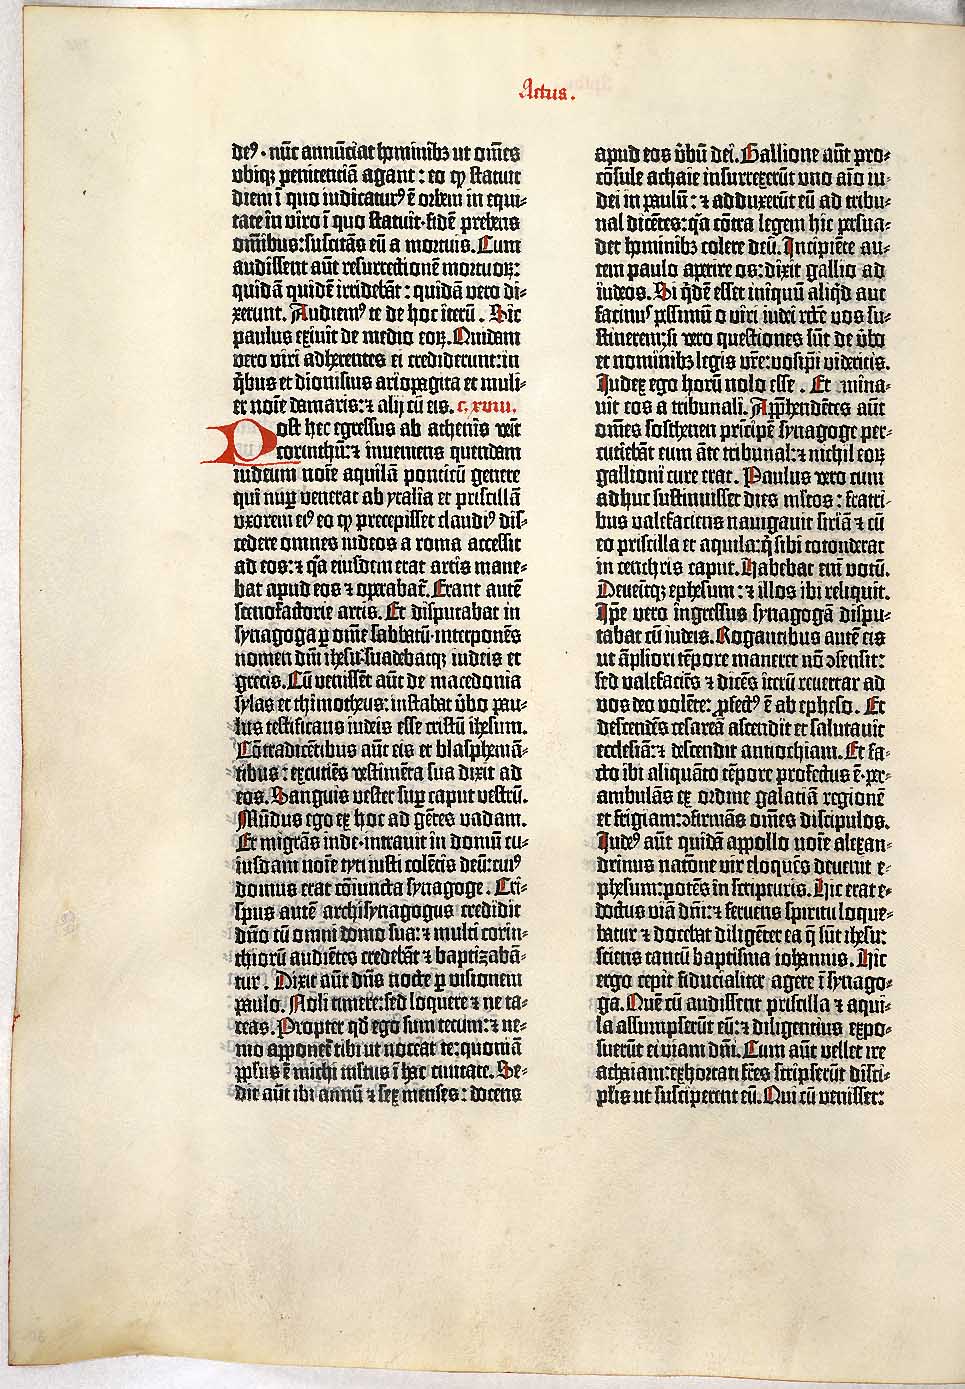 Actus.
deꝰ · nūc annūciat hominibꝫ ut om̄es
vbiqꝫ penitenciā agant : eo ꝙ statuit
diem ī quo iudicaturꝰ ē orbem in equi-
tate in viro ī quo statuit · fidē prebens
om̄ibus : suscitās eū a mortuis. Cum
audissent aūt resurrectionē mortuoꝝ :
quidā quidē irridebāt : quidā vero di-
xerunt. Audiemꝰ te de hoc iterū. Sic
paulus exiuit de medio eoꝝ. Quidam
vero viri adherentes ei crediderunt : in
q̇bus et dionisius ariopagita et muli-
er noīe damaris : ⁊ alij cū eis. c. xviii.
Post hec egressus ab athenis veīt
corinthū : ⁊ inueniens quendam
iudeum noīe aquilā ponticū genere
qui nuꝑ venerat ab ytalia et priscillā
vxorem eiꝰ eo ꝙ precepisset claudiꝰ dis-
cedere omnes iudeos a roma accessit
ad eos : ⁊ q̄a eiusdem erat artis mane-
bat apud eos ⁊ oꝑabat᷑. Erant autē
scenofactorie artis. Et disputabat in
synagoga ꝑ om̄e sabbatū · interponēs
nomen dn̄i ihesu · suadebatqꝫ iudeis et
grecis. Cū venissēt aūt de macedonia
sylas et thimotheus : instabat v̄bo pau-
lus testificans iudeis esse cristū ihesum.
Cōtradicētibus aūt eis et blasphemā-
tibus : excutiēs vestimēta sua dixit ad
eos. Sanguis vester suꝑ caput vestrū.
Mūdus ego ex hoc ad gētes vadam.
Et migrās inde · intrauit in domū cu-
iusdam noīe tyti iusti colētis deū : cuiꝰ
domus erat cōiuncta synagoge. Cri-
spus autē archisynagogus credidit
dn̄o cū omni domo sua : ⁊ multi corin-
thiorū audiētes credebāt ⁊ baptizabā-
tur. Dixit aūt dn̄s nocte ꝑ visionem
paulo. Noli timere : sed loquere ⁊ ne ta-
ceas. Propter qd̄ ego sum tecum : ⁊ ne-
mo apponet᷑ tibi ut noceat te : quoniā
ꝓpl̄us ē michi multus ī hac ciuitate. Se-
dit aūt ibi annū ⁊ sex menses : docens
apud eos v̄bū dei. Gallione aūt pro-
cōsule achaie insurrexerūt vno aīo iu-
dei in paulū : ⁊ adduxerūt eū ad tribu-
nal dicētes : q̄a cōtra legem hic ꝑsua-
det hominibꝫ colere deū. Incipiēte au-
tem paulo aperire os : dixit gallio ad
iudeos. Si q̇dē esset iniquū aliq̇d aut
facinuꝰ pessimū o viri iudei rc̄e vos su-
stinerem : si vero questiones sūt de v̄bo
et nominibꝫ legis vr̄e : vosip̄i videritis.
Iudex ego horū nolo esse. Et mina-
uit eos a tribunali. Apꝓhendētes aūt
om̄es sosthenen pricipē synagoge per-
cutiebāt eum āte tribunal : ⁊ nichil eoꝝ
gallioni cure erat. Paulus vero cum
adhuc sustinuisset dies ml̄tos : fratri-
bus valefaciens nauigauit siriā ⁊ cū
eo priscilla et aquila : q̇ sibi totonderat
in cenchris caput. Habebat enī votū.
Deuenitqꝫ ephesum : ⁊ illos ibi reliquit.
Ip̄e vero ingressus synagogā dispu-
tabat cū iudeis. Rogantibus autē eis
ut āpliori tēpore maneret nō ↄsensit :
sed valefaciēs ⁊ dicēs iterū reuertar ad
vos deo volēte : ꝓfectꝰ ē ab epheso. Et
descendēs cesareā ascendit et salutauit
ecclesiā : ⁊ descendit antiochiam. Et fa-
cto ibi aliquāto tēpore profectus ē · per-
ambulās ex ordine galatiā regionē
et frigiam : ↄfirmās om̄es discipulos.
Iudeꝰ aūt quidā appollo noīe alexan-
drinus nac̄one vir eloquēs deuenit e-
phesum : potēs in scripturis. Hic erat e-
doctus viā dn̄i : ⁊ feruens spiritu loque-
batur ⁊ docebat diligēter ea q̄ sūt ihesu :
sciens tantū baptisma iohannis. Hic
ergo cepit fiducialiter agere ī synago-
ga. Quē cū audissent priscilla ⁊ aqui-
la assumpserūt eū : ⁊ diligentius expo-
suerūt ei viam dn̄i. Cum aūt vellet ire
achaiam : exhortati fr̄es scripserūt disci-
pl̄is ut susciperent eū. Qui cū venisset :